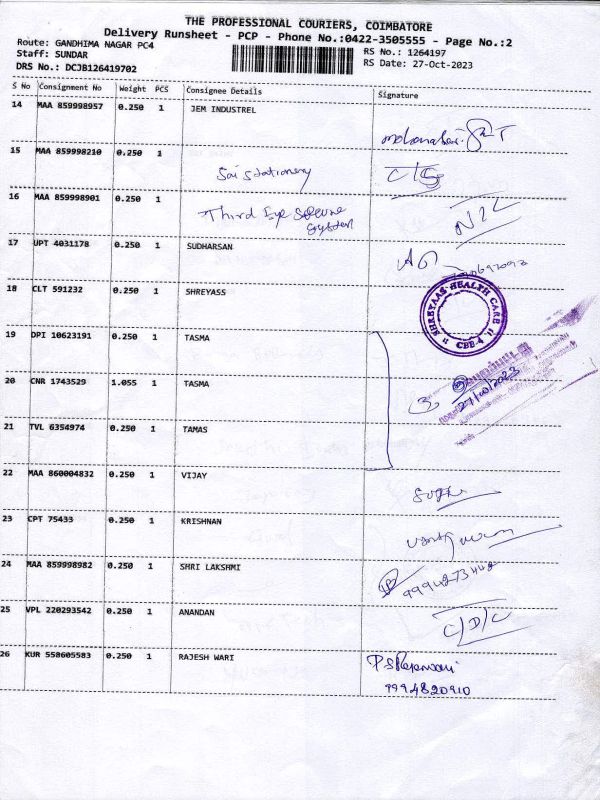 THE PROFESSIONAL COURIERS, COIMBATORE
Delivery Runsheet - PCP - Phone No.:0422-3505555 - Page No.:2
Route: GANDHIMA NAGAR PC4
RS No.: 1264197
Staff: SUNDAR
RS Date: 27-Oct-2023
DRS No.: DCJB126419702
S No Consignment No Weight PCS Consignee Details Signature
14 MAA 859998957 0.250 1 JEM INDUSTREL
15 MAA 859998210 0.250 1
Sai Stationery
16 MAA 859998901 0.250 1
Third Eye
System
17 UPT 4031178 0.250 1 SUDHARSAN
18 CLT 591232 0.250 1 SHREYASS
SHREYAAS HEALTH CARE
CBE-4
19 DPI 10623191 0.250 1 TASMA
20 CNR 1743529 1.055 1 TASMA
27/10/2023
21 TVL 6354974 0.250 1 TAMAS
22 MAA 860004832 0.250 1 VIJAY
23 CPT 75433 0.250 1 KRISHNAN
24 MAA 859998982 0.250 1 SHRI LAKSHMI
9994273442
25 VPL 220293542 0.250 1 ANANDAN
C/D/C
26 KUR 558605583 0.250 1 RAJESH WARI
9994820910